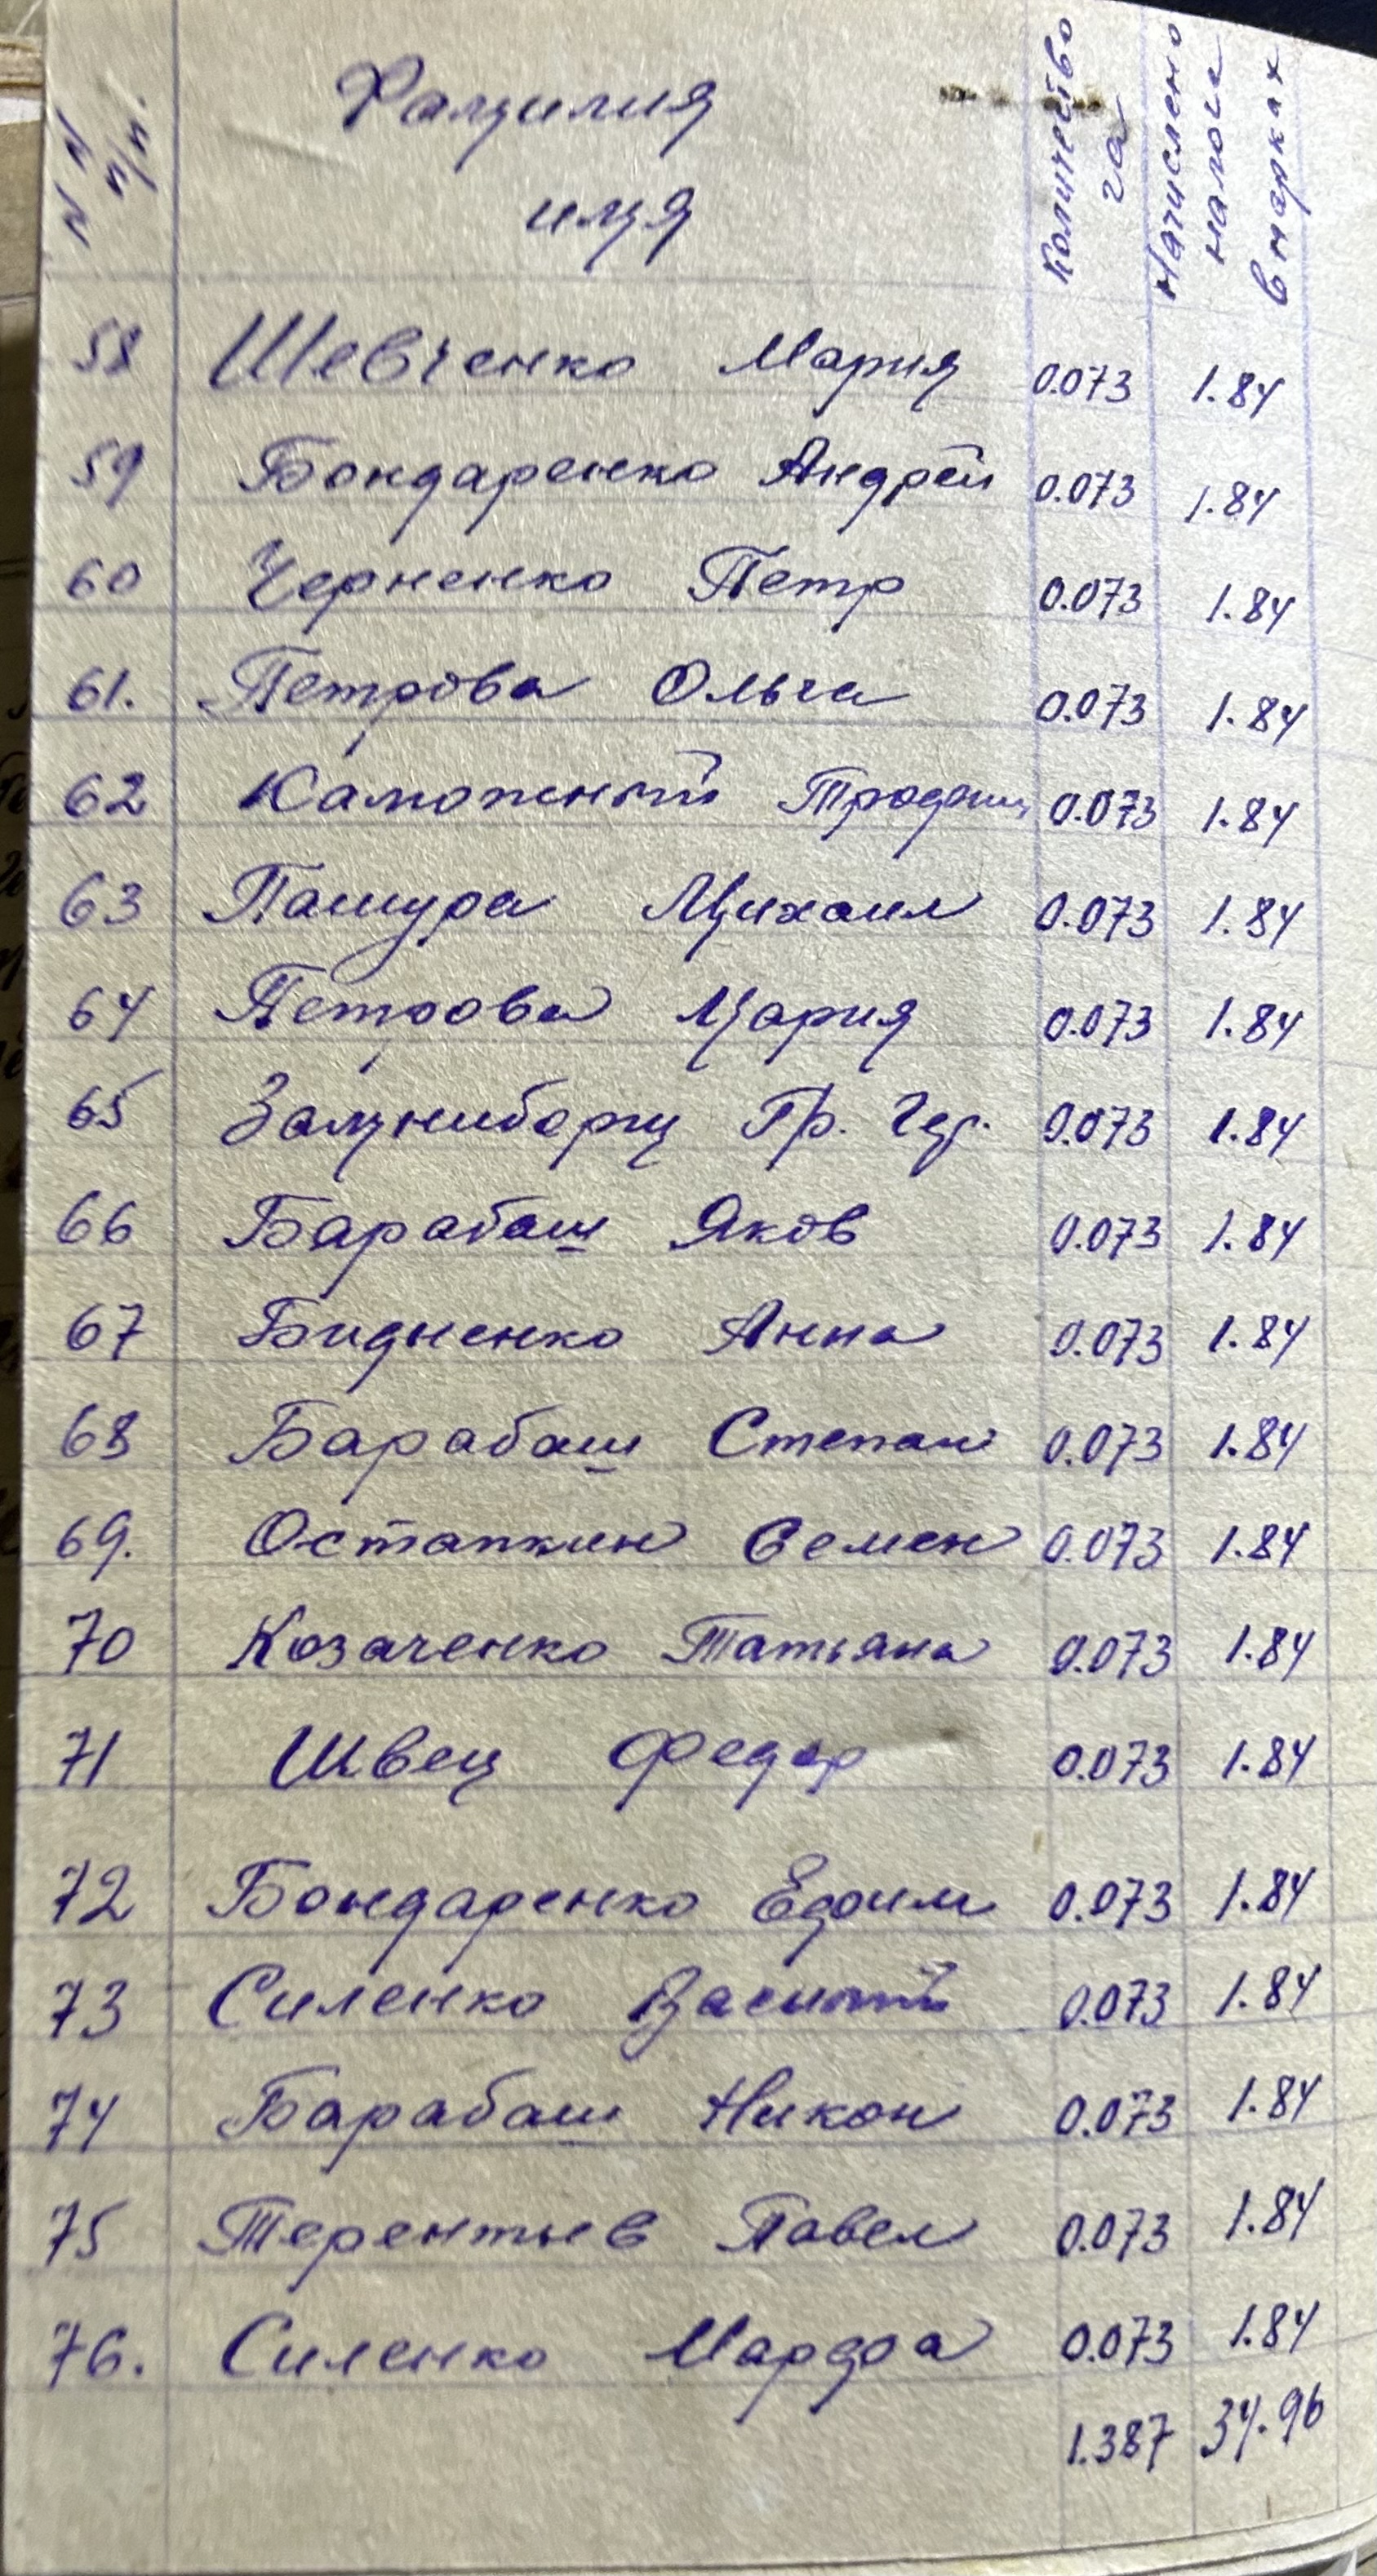 №№ п/п. Фамилия имя Количество га Начислено налога в марках
58 Шевченко Мария 0.073 1.84
59 Бондаренко Андрей 0.073 1.84
60 Черненко Петр 0.073 1.84
61. Петрова Ольга 0.073 1.84
62 0.073 1.84
63 Пашура Михаил 0.073 1.84
64 Петрова Мария 0.073 1.84
65 Замниборщ Гр. 0.073 1.84
66 Барабаш Яков 0.073 1.84
67 Бидненко Анна 0.073 1.84
68 Барабаш Степан 0.073 1.84
69. Остапкин Семен 0.073 1.84
70 Козаченко Татьяна 0.073 1.84
71 Швец Федор 0.073 1.84
72 Бондаренко Ефим 0.073 1.84
73 Силенко Василий 0.073 1.84
74 Барабаш Никон 0.073 1.84
75 Терентьев Павел 0.073 1.84
76. Силенко Марфа 0.073 1.84
1.387 34.96